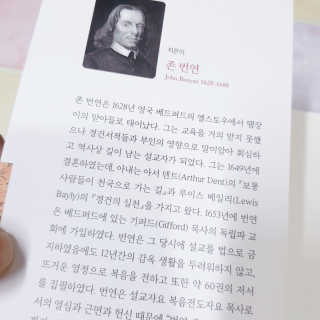 지은이
존 번연
John Bunyan 1628-1688
존 번연은 1628년 영국 베드퍼드의 엘스토우에서 땜장
이의 맏아들로 태어났다. 그는 교육을 거의 받지 못했
으나 경건서적들과 부인의 영향으로 말미암아 회심하
고 역사상 길이 남는 설교자가 되었다. 그는 1649년에
결혼하였는데, 아내는 아서 덴트(Arthur Dent)의 『보통
사람들이 천국으로 가는 길』과 루이스 베일리(Lewis
Bayly)의 『경건의 실천』을 가지고 왔다. 1653년에 번연
은 베드퍼드에 있는 기퍼드(Gifford) 목사의 독립파 교
회에 가입하였다. 번연은 그 당시에 설교를 법으로 금
지하였음에도 12년간의 감옥 생활을 두려워하지 않고,
뜨거운 열정으로 복음을 전하고 또한 약 60권의 저서
를 집필하였다. 번연은 설교자요 복음전도자요 목사로
서의 열심과 근면과 헌신 때문에